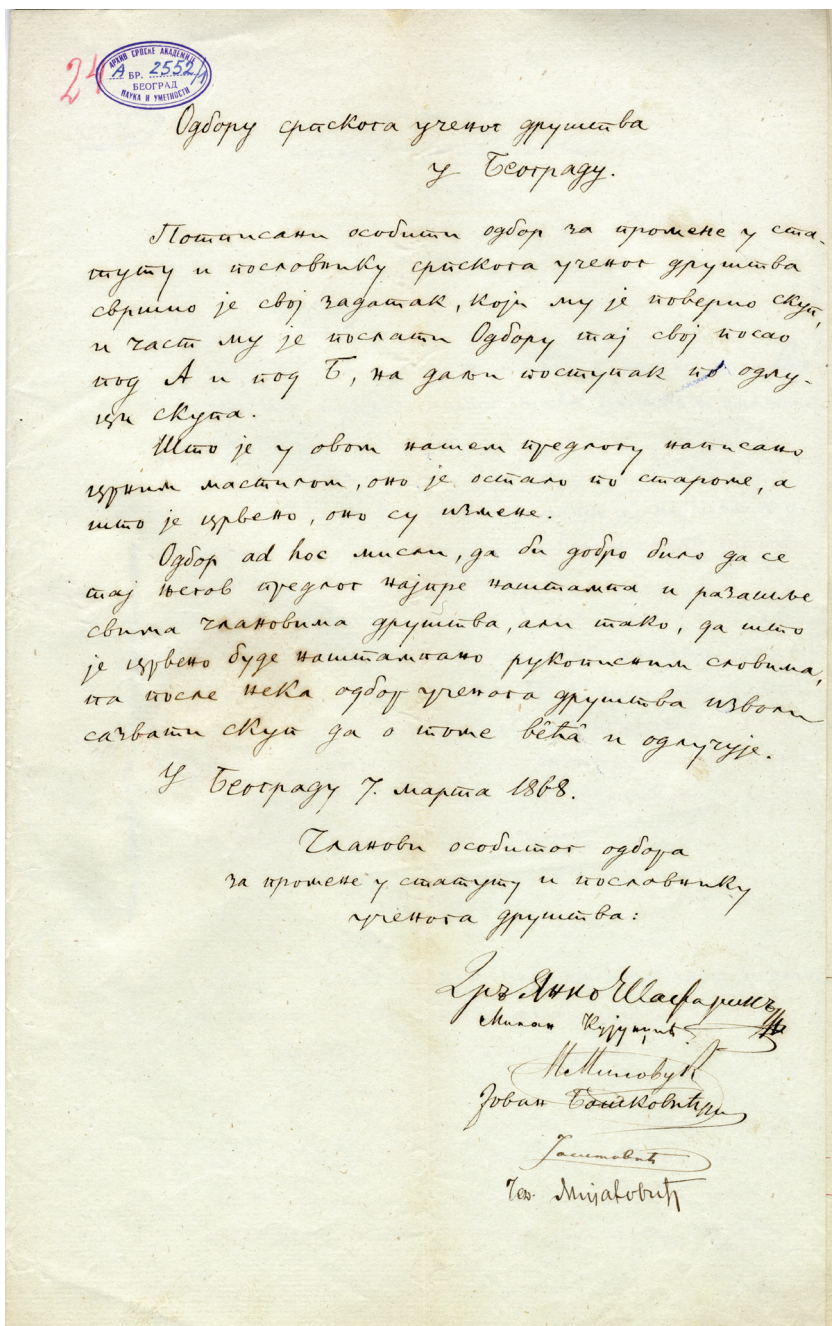 24
АРХИВ СРПСКЕ АКАДЕМИЈЕ
А БР. 2552/1
БЕОГРАД
НАУКА И УМЕТНОСТИ
Одбору српскога ученог друштва
у Београду.
Потписани особити одбор за промене у ста-
туту и пословнику српскога ученог друштва
свршио је свој задатак, који му је поверио скуп,
и част му је послати Одбору тај свој посао
под А и под Б, на даљи поступак по одлу-
ци скупа.
Што је у овом нашем предлогу написано
црним мастилом, оно је остало по староме, а
што је црвено, оно су измене.
Одбор ad hoc мисли, да би добро било да се
тај његов предлог најпре наштампа и разашље
свима члановима друштва, али тако, да што
је црвено буде наштампано рукописним словима,
па после нека одбор ученога друштва изволи
сазвати скуп да о томе већâ и одлучује.
У Београду 7. марта 1868.
Чланови особитог одбора
за промене у статуту и пословнику
ученога друштва:
Дръ Янко Шафарикъ
Милан Кујунџић
М Миловук
Јован Бошковић
Чед. Мијатовић